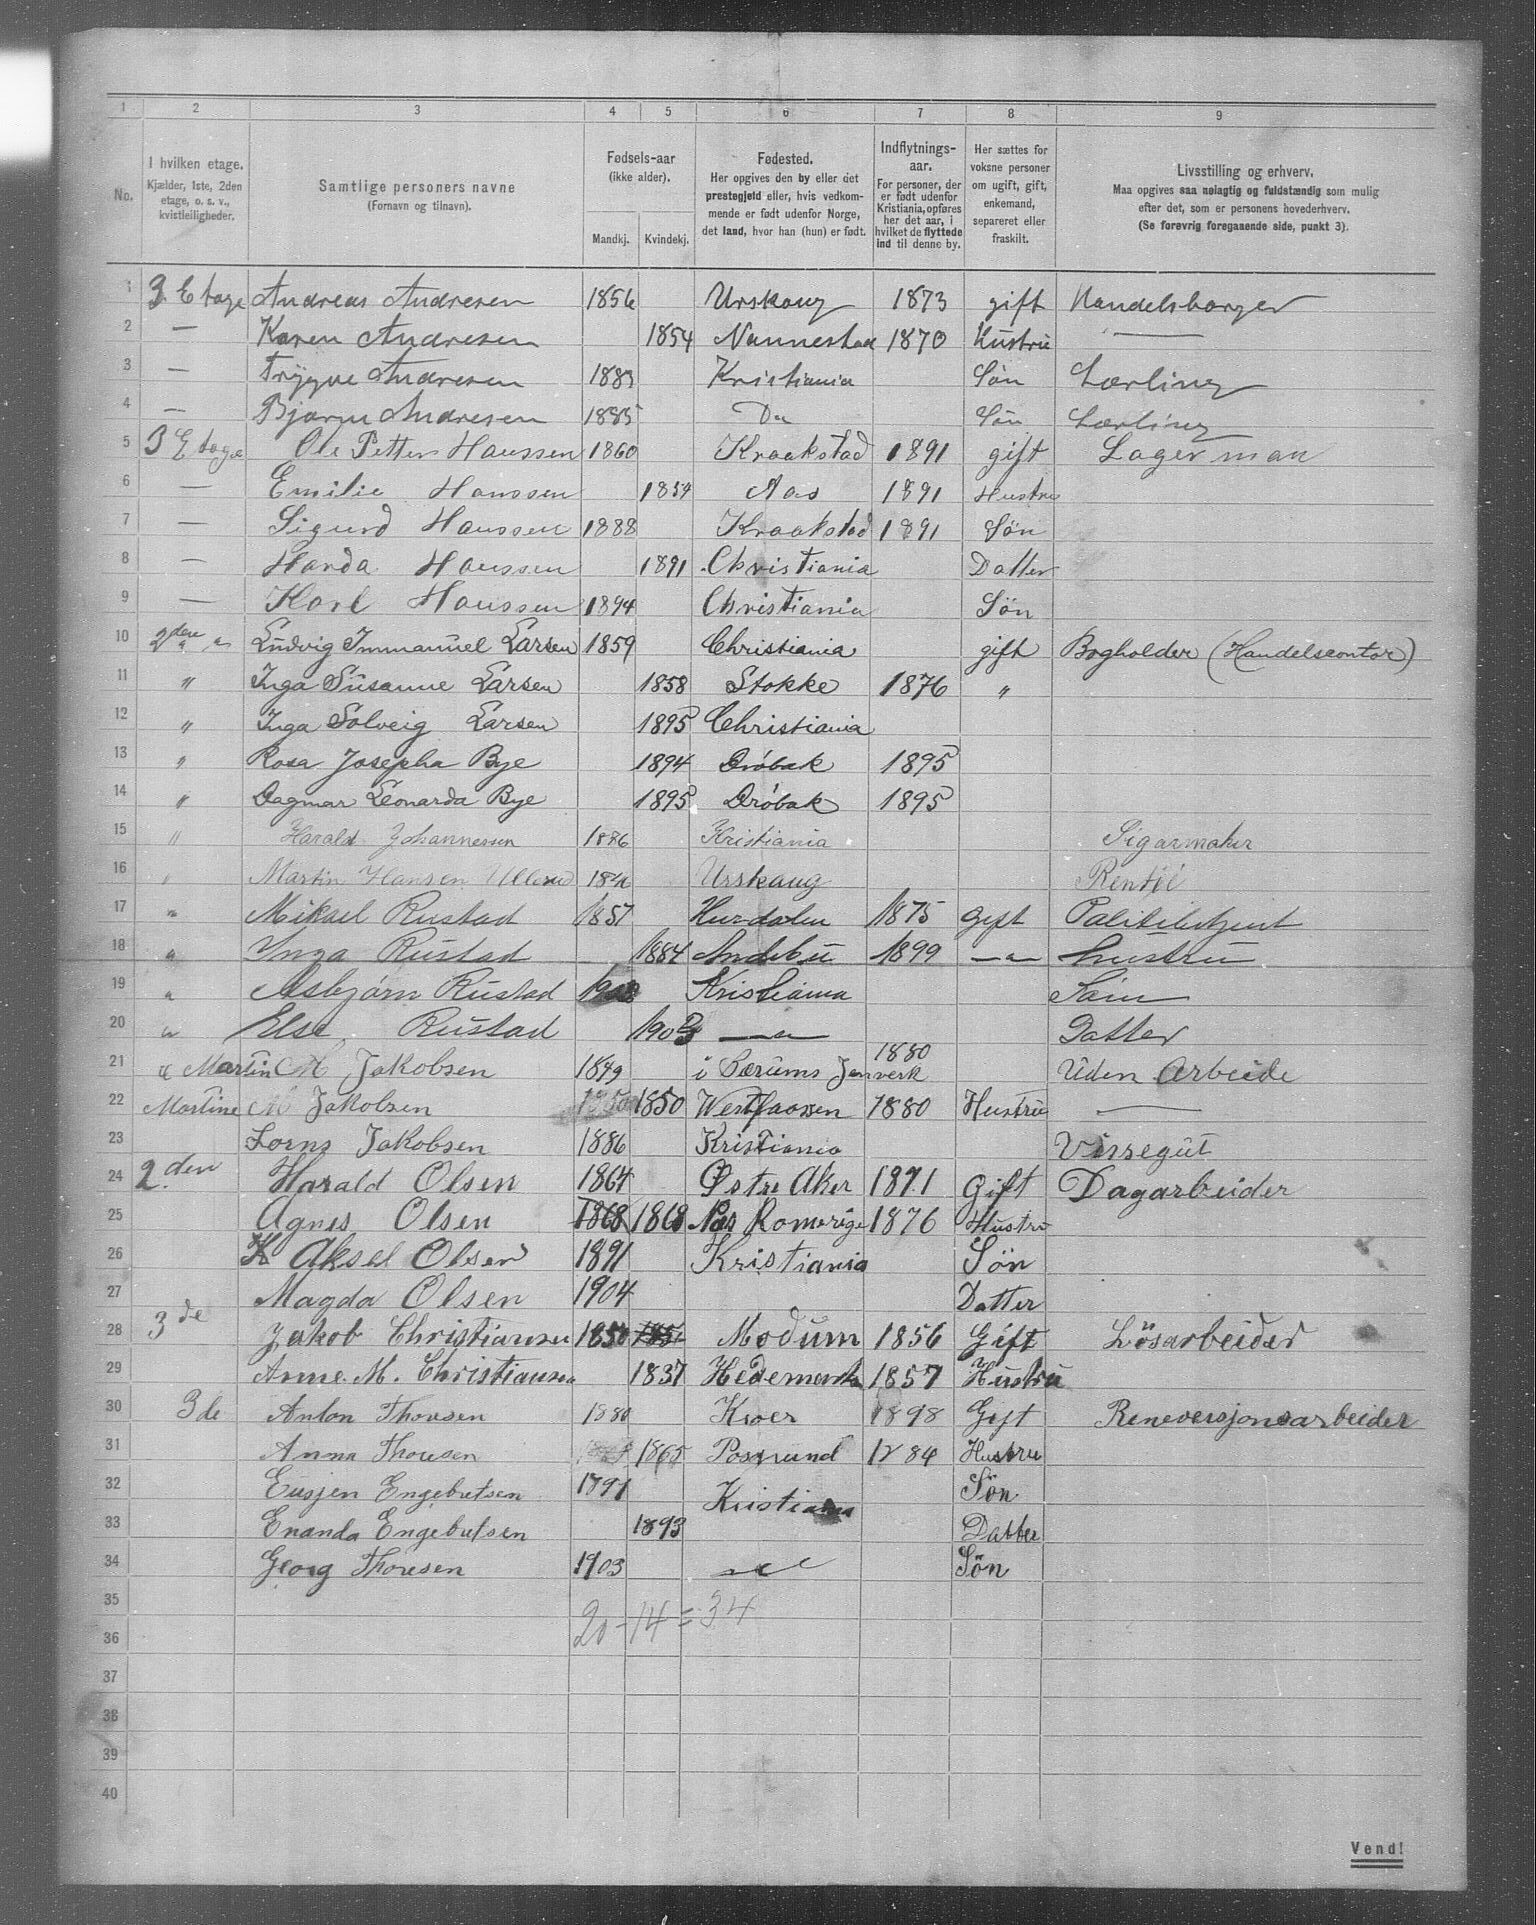 1 2 3 4 5 6 7 8 9
No.
I hvilken etage.
Kjælder, 1ste, 2den
etage, o. s. v.,
kvistleiligheder.
Samtlige personers navne
(Fornavn og tilnavn).
Fødsels-aar
(ikke alder).
Mandkj. Kvindekj.
Fødested.
Her opgives den by eller det
prestegjeld eller, hvis vedkom-
mende er født udenfor Norge,
det land, hvor han (hun) er født.
Indflytnings-
aar.
For personer, der
er født udenfor
Kristiania, opføres
her det aar, i
hvilket de flyttede
ind til denne by.
Her sættes for
voksne personer
om ugift, gift,
enkemand,
separeret eller
fraskilt.
Livsstilling og erhverv.
Maa opgives saa nøiagtig og fuldstændig som mulig
efter det, som er personens hovederhverv.
(Se forøvrig foregaaende side, punkt 3).
1 3 Etage Andreas Andresen 1856 Urskoug 1873 gift Handelsborger
2 — Karen Andresen 1854 Nannestad 1870 Hustru —
3 — Trygve Andresen 1883 Kristiania Søn Lærling
4 — Bjarne Andresen 1885 Do Søn Lærling
5 3 Etage Ole Petter Hanssen 1860 Kraakstad 1891 gift Lagerman
6 — Emilie Hanssen 1854 Aas 1891 Hustru
7 — Sigurd Hanssen 1888 Kraakstad 1891 Søn
8 — Harda Hanssen 1891 Christiania Datter
9 — Karl Hanssen 1894 Christiania Søn
10 2den " Ludvig Immanuel Larsen 1859 Christiania gift Bogholder (Handelscontor)
11 " Inga Susanne Larsen 1858 Stokke 1876 "
12 " Inga Solveig Larsen 1895 Christiania
13 " Rosa Josepha Bye 1894 Drøbak 1895
14 " Dagmar Leonarda Bye 1895 Drøbak 1895
15 " Harald Johannessen 1886 Kristiania Sigarmaker
16 " Martin Hansen Urskaug
17 " Mikael Rustad 1857 Hurdalen 1875 Gift Politibetjent
18 " Inga Rustad 1884 Andebu 1899 —"— Hustru
19 " Asbjørn Rustad Kristiania Søn
20 " Else Rustad 1903 —"— Datter
21 " Martin M Jakobsen 1849 i Bærums Jernverk 1880 Uden Arbeide
22 Martine M Jakobsen 1850 Westfaassen 1880 Hustru —
23 Lorns Jakobsen 1886 Kristiania Vissegut
24 2.den Harald Olsen 1864 Østre Aker 1871 Gift Dagarbeider
25 Agnes Olsen 1868 1868 Nes Romerige 1876 Hustru
26 Aksel Olsen 1891 Kristiania Søn
27 Magda Olsen 1904 Datter
28 3de Jakob Christiansen 1850 Modum 1856 Gift Løsarbeider
29 Anne. M. Christiansen 1837 Hedemarken 1857 Hustru
30 3de Anton Thoresen 1880 Kroer 1898 Gift Renoversjonsarbeider
31 Anna Thoresen 1865 Posgrund 1884 Hustru
32 Eusjen Engebretsen 1891 Kristiania Søn
33 Enanda Engebretsen 1893 Datter
34 Georg Thoresen 1903 Søn
35
36 20-14=34
37
38
39
40
Vend!